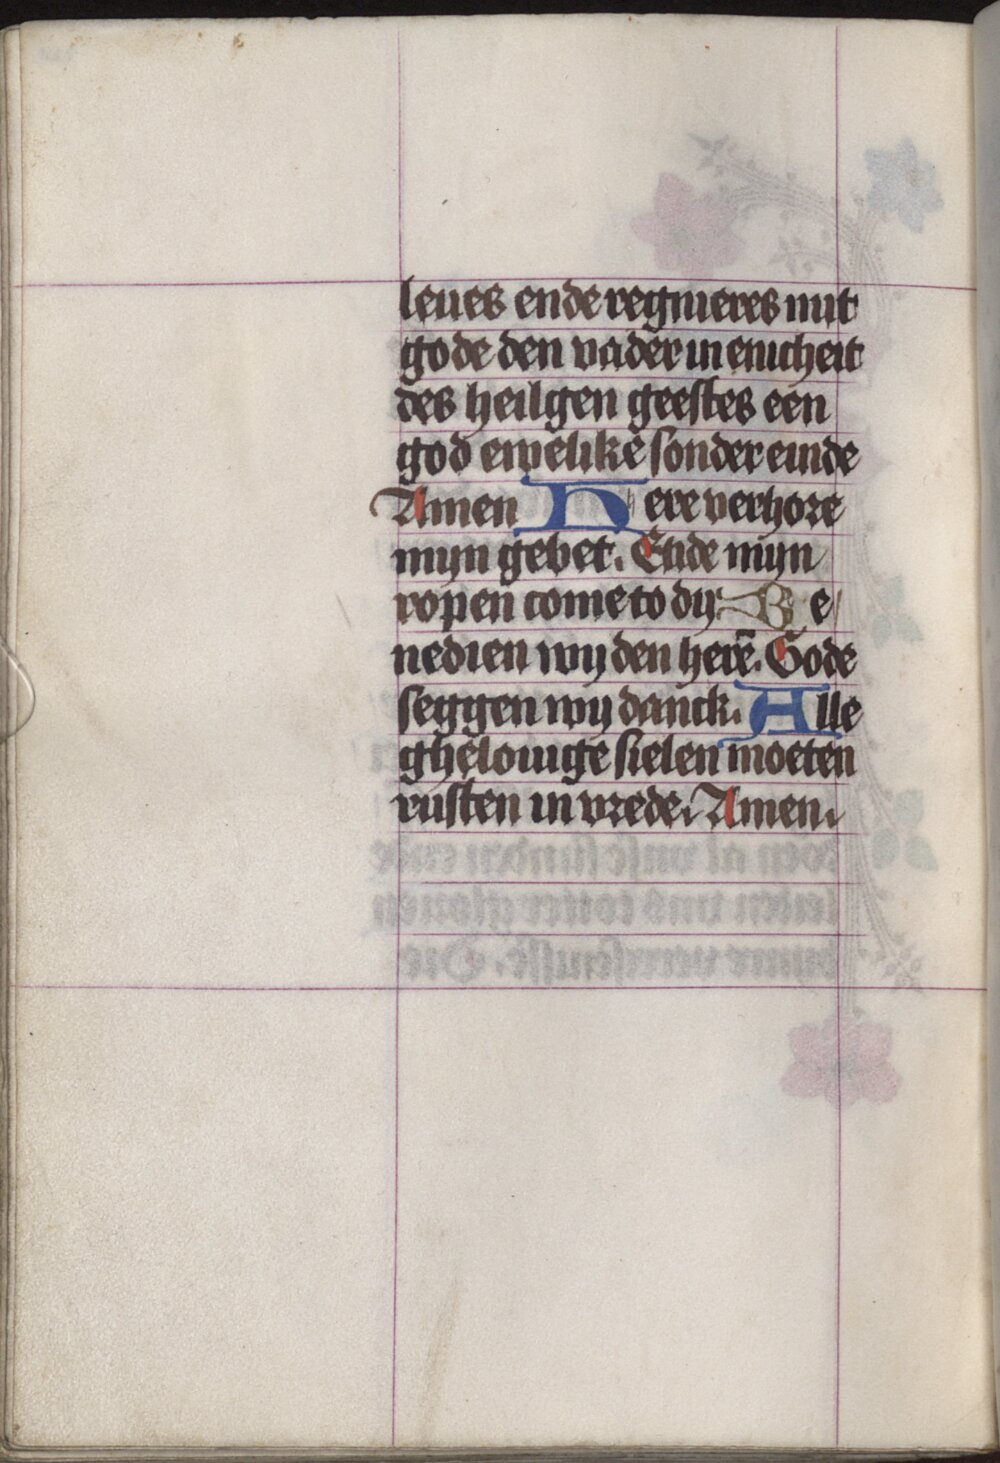 leues ende regnieres mit
gode den vader in enicheit
des heilgen geestes een
god ewelikē sonder einde
Amen Here verhore
mijn gebet. Ende mijn
ropen come to dy Be
nedien wy den herē. Gode
seggen wy danck. Alle
ghelouige sielen moeten
rusten in vrede. Amen.